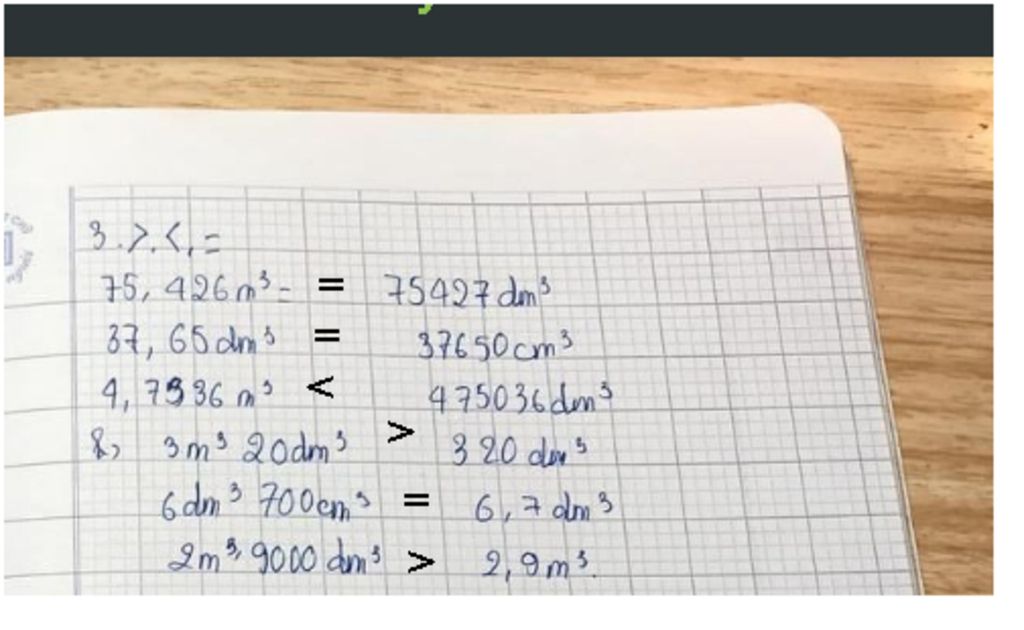 3. >, <, =
75, 426 m³ - = 75427 dm³
37, 65 dm³ = 37650 cm³
4, 7936 m³ < 475036 dm³
&, 3 m³ 20 dm³ > 320 dm³
6 dm³ 700 cm³ = 6, 7 dm³
2 m³, 9000 dm³ > 2, 9 m³.